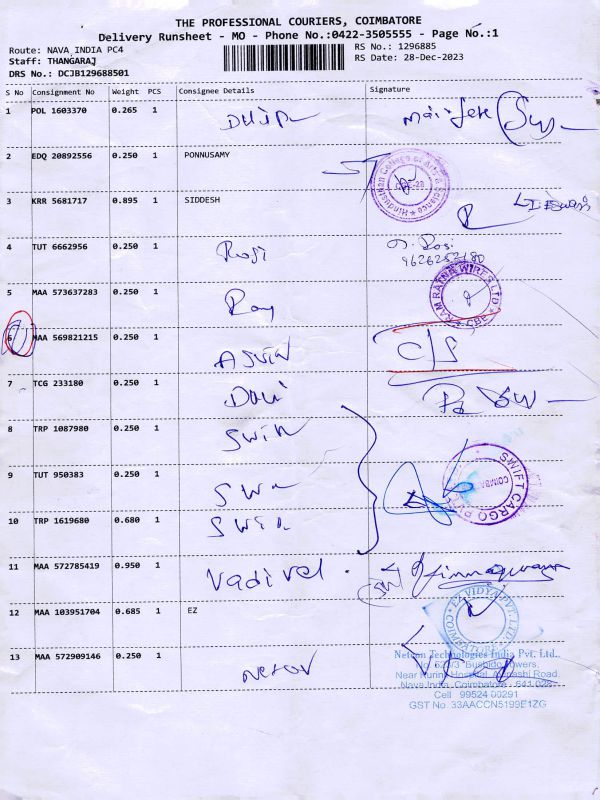 THE PROFESSIONAL COURIERS, COIMBATORE
Delivery Runsheet - MO - Phone No.:0422-3505555 - Page No.:1
Route: NAVA INDIA PC4
RS No.: 1296885
Staff: THANGARAJ
RS Date: 28-Dec-2023
DRS No.: DCJB129688501
S No Consignment No Weight PCS Consignee Details Signature
1 POL 1603370 0.265 1
2 EDQ 20892556 0.250 1 PONNUSAMY
Hindusthan College of Arts & Science
3 KRR 5681717 0.895 1 SIDDESH
4 TUT 6662956 0.250 1 Roji
9626252180
5 MAA 573637283 0.250 1 Roy
RAM RATNA WIRES LTD
6 MAA 569821215 0.250 1 ASWIN C/S
7 TCG 233180 0.250 1
8 TRP 1087980 0.250 1 Swin
9 TUT 950383 0.250 1
SWIFT CARGO
COIMBA
10 TRP 1619680 0.680 1
11 MAA 572785419 0.950 1 Vadivel
12 MAA 103951704 0.685 1 EZ
EZ VIDYA PVT. LTD.
13 MAA 572909146 0.250 1
Netcon Technologies India Pvt. Ltd.,
Towers,
Near Road
Nava India, Coimbatore - 641 028
Cell 99524 00291
GST No. 33AACCN5199E1ZG